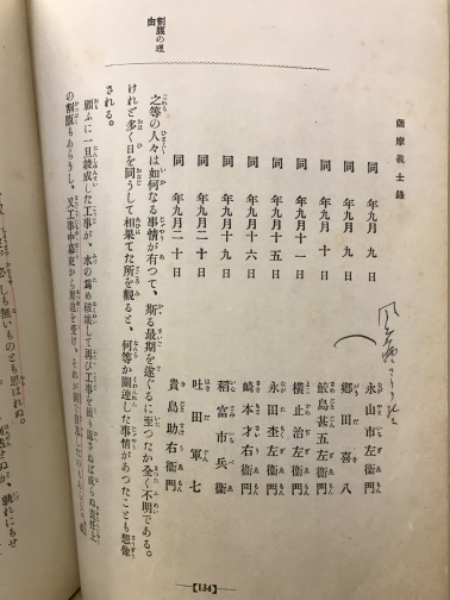 薩摩義士錄
同 年九月 九 日 永山市左衛門
同 年九月 九 日 鄕田喜八
同 年九月 十 日 鮫島甚五左衛門
同 年九月十一日 橫止治左衛門
同 年九月十五日 永田杢左衛門
同 年九月十六日 崎本才右衛門
同 年九月十九日 稻富市兵衞
同 年九月二十日 吐田軍七
同 年九月二十日 貴島助右衛門
之等の人々は如何なる事情が有つて、斯る最期を遂ぐるに至つたか全く不明である。
けれど多く日を同うして相果てた所を觀ると、何等か關連した事情があつたことも想像
される。
顧ふに一旦竣成した工事が、水の爲め破壞して再び工事を繰り返さねば成らぬ責任上
の割腹もあらうし、又工事中幕府から
割腹の理由
【134】
必しも無いものとも思はれぬ。
孰れにもせ